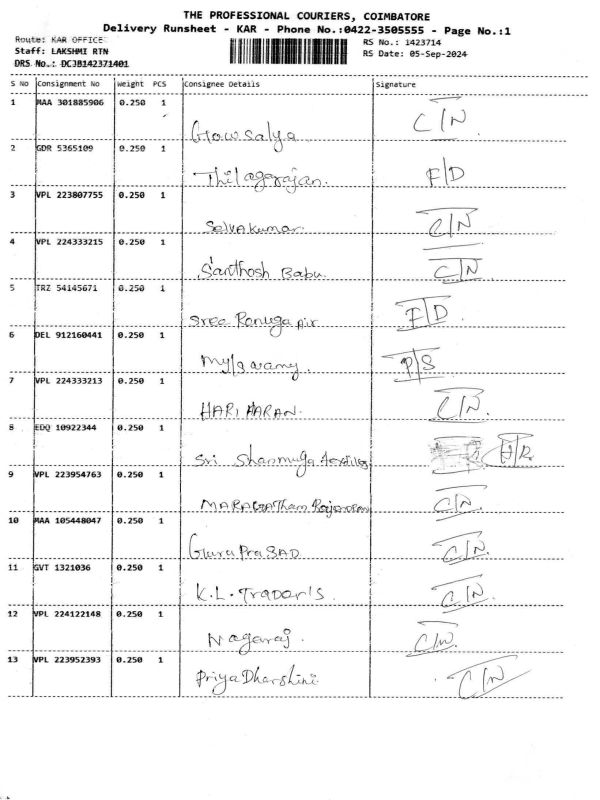 THE PROFESSIONAL COURIERS, COIMBATORE
Delivery Runsheet - KAR - Phone No.:0422-3505555 - Page No.:1
Route: KAR OFFICE
RS No.: 1423714
Staff: LAKSHMI RTN
RS Date: 05-Sep-2024
DRS No.: DCJB142371401
S No Consignment No Weight PCS Consignee Details Signature
1 MAA 301885906 0.250 1 Gowsalya C/N
2 GDR 5365109 0.250 1 Thilagarajan. F/D
3 VPL 223807755 0.250 1 Selvakumar. C/N
4 VPL 224333215 0.250 1 Santhosh Babu. C/N
5 TRZ 54145671 0.250 1 Sree Renuga Air F/D
6 DEL 912160441 0.250 1 P/S
7 VPL 224333213 0.250 1 HARI HARAN. C/N.
8 EDQ 10922344 0.250 1 Sri Shanmuga textiles
9 VPL 223954763 0.250 1 MARAGATham Rajendran C/N
10 MAA 105448047 0.250 1 Guru PraSAD C/N.
11 GVT 1321036 0.250 1 K.L. TRADer'S. C/N.
12 VPL 224122148 0.250 1 Nagaraj. C/N.
13 VPL 223952393 0.250 1 PriyaDharshini C/N